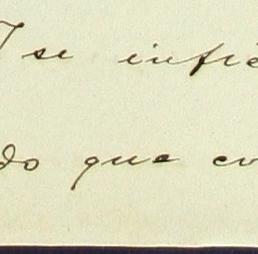 se infie
do que co